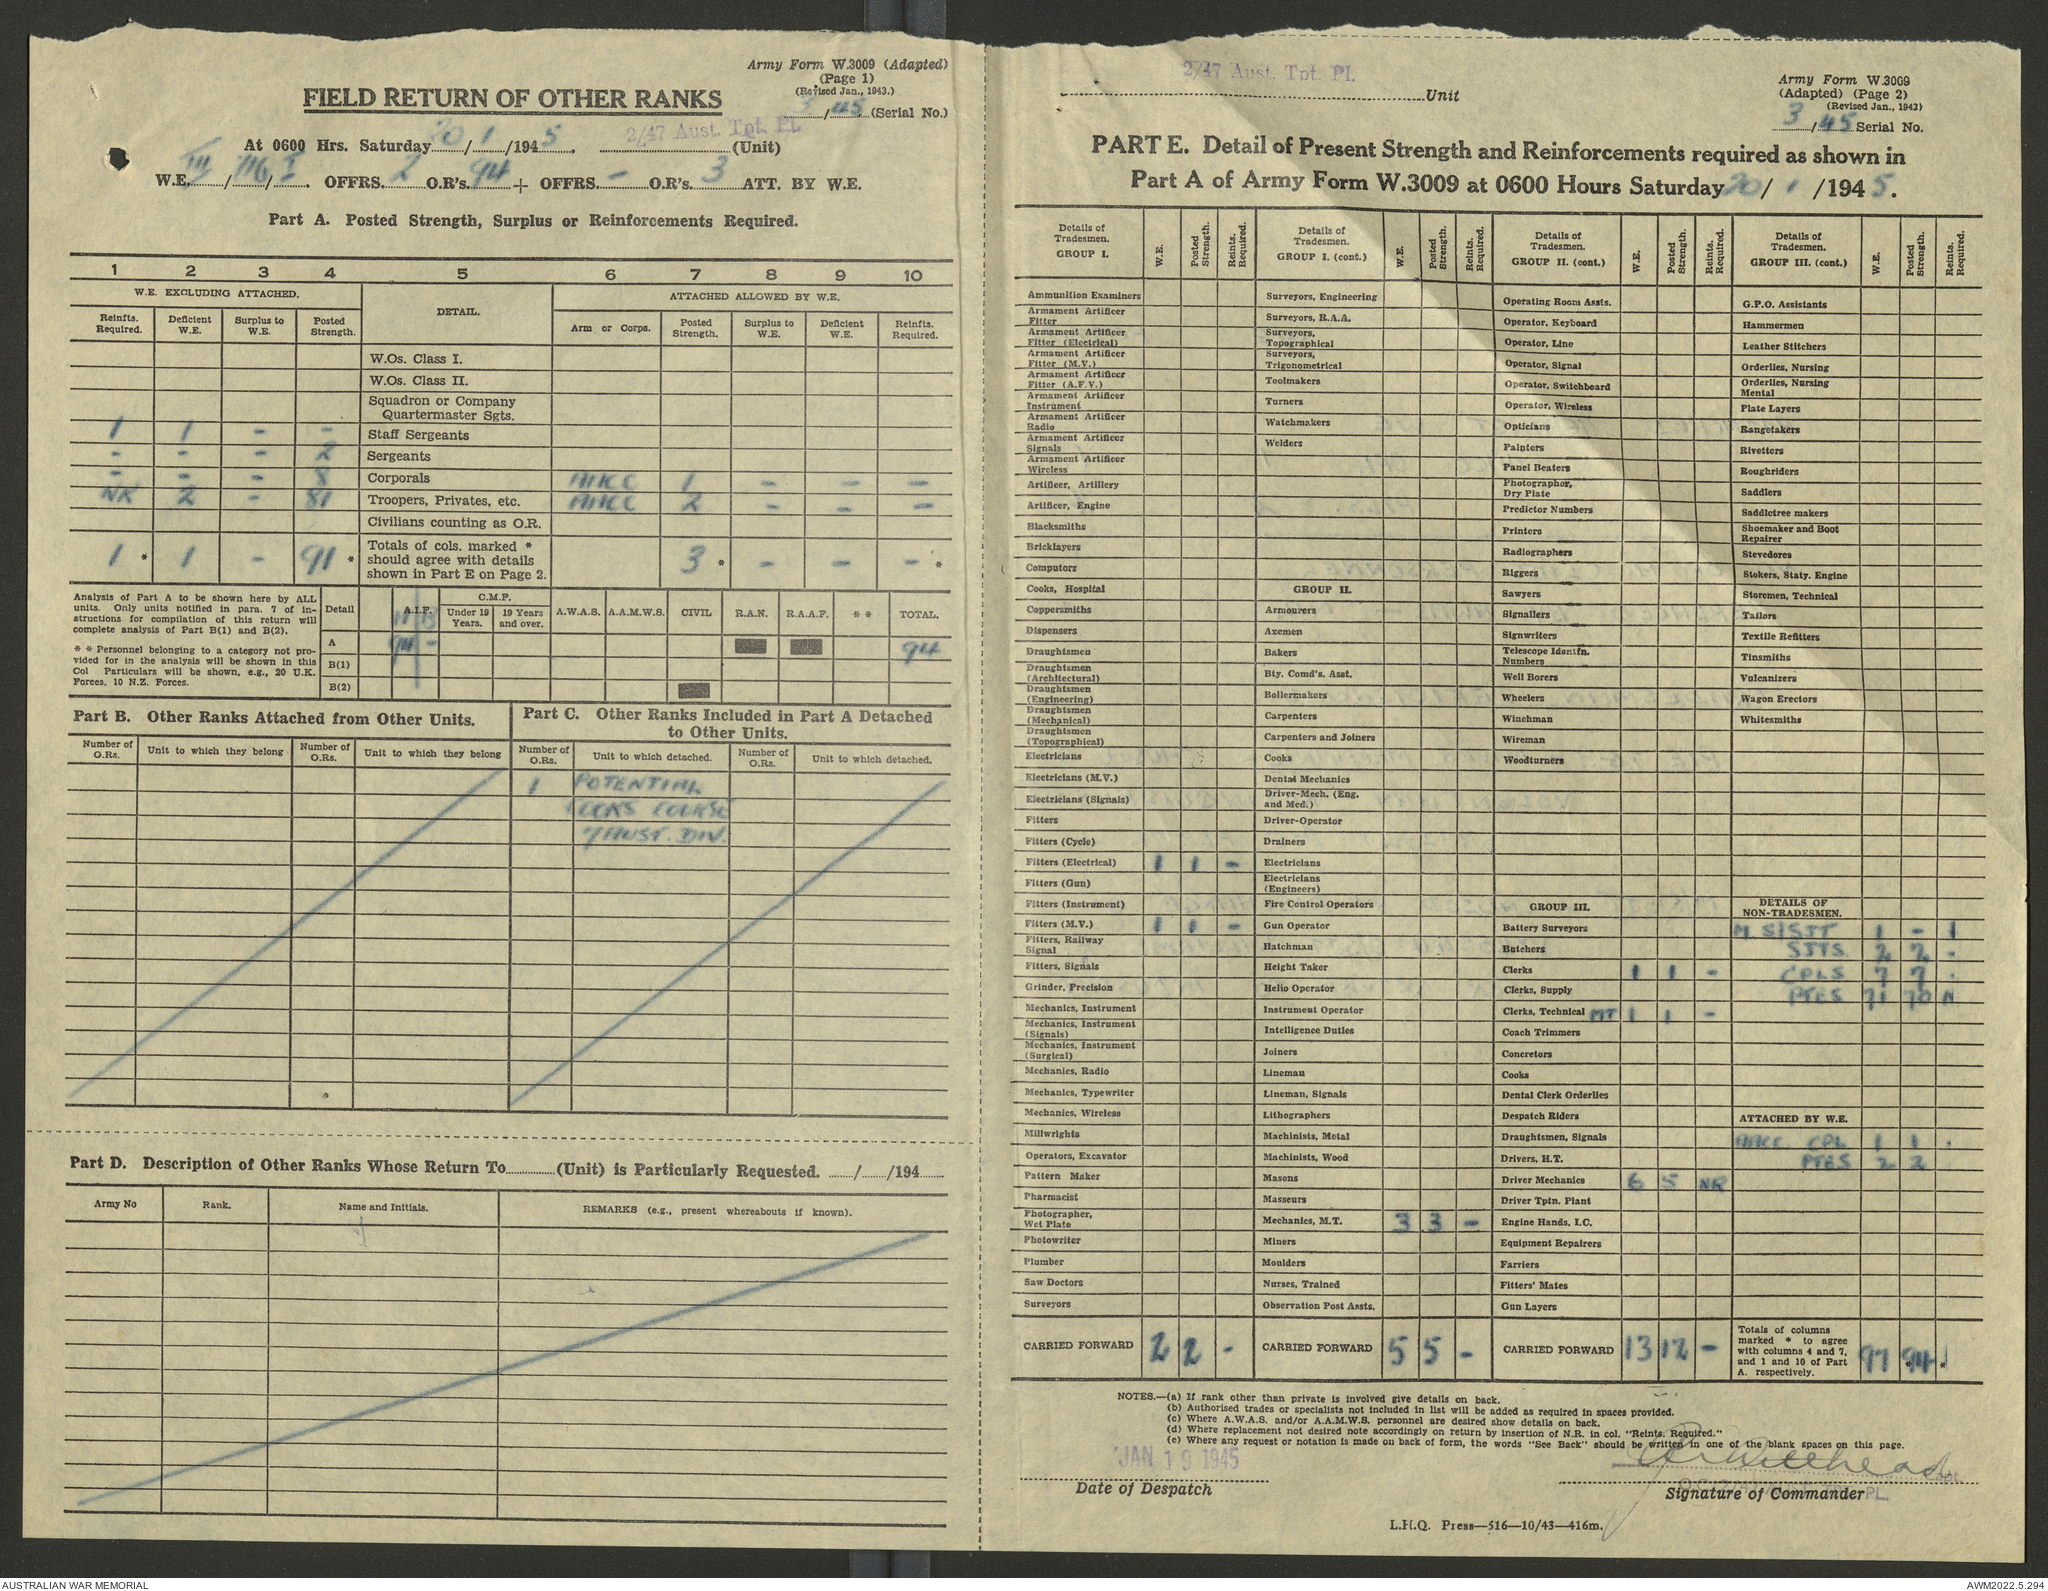 Army Form W.3009 (Adapted)
(Page 1)
(Revised Jan., 1943.)
FIELD RETURN OF OTHER RANKS
3/45 (Serial No.)
At 0600 Hrs. Saturday 20/1/1945. 2/47 Aust. Tpt. Pl. (Unit)
W.E. III/116/I. OFFRS. 2 O.R's. 94 + OFFRS. - O.R's. 3 ATT. BY W.E.
Part A. Posted Strength, Surplus or Reinforcements Required.
1 2 3 4 5 6 7 8 9 10
W.E. EXCLUDING ATTACHED. DETAIL. ATTACHED ALLOWED BY W.E.
Reinfts. Required. Deficient W.E. Surplus to W.E. Posted Strength. Arm or Corps. Posted Strength. Surplus to W.E. Deficient W.E. Reinfts. Required.
W.Os. Class I.
W.Os. Class II.
Squadron or Company
Quartermaster Sgts.
1 1 - - Staff Sergeants
- - - 2 Sergeants
- - - 8 Corporals AACC 1 - - -
NR 2 - 81 Troopers, Privates, etc. AACC 2 - - -
Civilians counting as O.R.
1 * 1 - 91 * Totals of cols. marked * should agree with details shown in Part E on Page 2. 3 * - - - *
Analysis of Part A to be shown here by ALL
units. Only units notified in para. 7 of in-
structions for compilation of this return will
complete analysis of Part B(1) and B(2).
* * Personnel belonging to a category not pro-
vided for in the analysis will be shown in this
Col Particulars will be shown, e.g., 20 U.K.
Forces, 10 N.Z. Forces.
Detail A.I.F. C.M.F. Under 19 Years. 19 Years and over. A.W.A.S. A.A.M.W.S. CIVIL R.A.N. R.A.A.F. * * TOTAL.
A 94 - 94
B(1)
B(2)
Part B. Other Ranks Attached from Other Units.
Number of O.Rs. Unit to which they belong Number of O.Rs. Unit to which they belong
Part C. Other Ranks Included in Part A Detached
to Other Units.
Number of O.Rs. Unit to which detached. Number of O.Rs. Unit to which detached.
1 POTENTIAL
COOKS COURSE
7 AUST. DIV.
Part D. Description of Other Ranks Whose Return To (Unit) is Particularly Requested. / /194
Army No Rank. Name and Initials. REMARKS (e.g., present whereabouts if known).
2/47 Aust. Tpt. Pl.
Unit
Army Form W.3009
(Adapted) (Page 2)
(Revised Jan., 1943)
3/45 Serial No.
PART E. Detail of Present Strength and Reinforcements required as shown in
Part A of Army Form W.3009 at 0600 Hours Saturday 20/1/1945.
Details of Tradesmen. GROUP I. W.E. Posted Strength. Reints. Required.
Ammunition Examiners
Armament Artificer Fitter
Armament Artificer Fitter (Electrical)
Armament Artificer Fitter (M.V.)
Armament Artificer Fitter (A.F.V.)
Armament Artificer Instrument
Armament Artificer Radio
Armament Artificer Signals
Armament Artificer Wireless
Artificer, Artillery
Artificer, Engine
Blacksmiths
Bricklayers
Computors
Cooks, Hospital
Coppersmiths
Dispensers
Draughtsmen
Draughtsmen (Architectural)
Draughtsmen (Engineering)
Draughtsmen (Mechanical)
Draughtsmen (Topographical)
Electricians
Electricians (M.V.)
Electricians (Signals)
Fitters
Fitters (Cycle)
Fitters (Electrical) 1 1 -
Fitters (Gun)
Fitters (Instrument)
Fitters (M.V.) 1 1 -
Fitters, Railway Signal
Fitters, Signals
Grinder, Precision
Mechanics, Instrument
Mechanics, Instrument (Signals)
Mechanics, Instrument (Surgical)
Mechanics, Radio
Mechanics, Typewriter
Mechanics, Wireless
Millwrights
Operators, Excavator
Pattern Maker
Pharmacist
Photographer, Wet Plate
Photowriter
Plumber
Saw Doctors
Surveyors
CARRIED FORWARD 2 2 -
Details of Tradesmen. GROUP I. (cont.) W.E. Posted Strength. Reints. Required.
Surveyors, Engineering
Surveyors, R.A.A.
Surveyors, Topographical
Surveyors, Trigonometrical
Toolmakers
Turners
Watchmakers
Welders
GROUP II.
Armourers
Axemen
Bakers
Bty. Comd's. Asst.
Boilermakers
Carpenters
Carpenters and Joiners
Cooks
Dental Mechanics
Driver-Mech. (Eng. and Med.)
Driver-Operator
Drainers
Electricians
Electricians (Engineers)
Fire Control Operators
Gun Operator
Hatchman
Height Taker
Helio Operator
Instrument Operator
Intelligence Duties
Joiners
Lineman
Lineman, Signals
Lithographers
Machinists, Metal
Machinists, Wood
Masons
Masseurs
Mechanics, M.T. 3 3 -
Miners
Moulders
Nurses, Trained
Observation Post Assts.
CARRIED FORWARD 5 5 -
Details of Tradesmen. GROUP II. (cont.) W.E. Posted Strength. Reints. Required.
Operating Room Assts.
Operator, Keyboard
Operator, Line
Operator, Signal
Operator, Switchboard
Operator, Wireless
Opticians
Painters
Panel Beaters
Photographer, Dry Plate
Predictor Numbers
Printers
Radiographers
Riggers
Sawyers
Signallers
Signwriters
Telescope Identfn. Numbers
Well Borers
Wheelers
Winchman
Wireman
Woodturners
GROUP III.
Battery Surveyors
Butchers
Clerks 1 1 -
Clerks, Supply
Clerks, Technical MT 1 1 -
Coach Trimmers
Concretors
Cooks
Dental Clerk Orderlies
Despatch Riders
Draughtsmen, Signals
Drivers, H.T.
Driver Mechanics 6 5 NR
Driver Tptn. Plant
Engine Hands, I.C.
Equipment Repairers
Farriers
Fitters' Mates
Gun Layers
CARRIED FORWARD 13 12 -
Details of Tradesmen. GROUP III. (cont.) W.E. Posted Strength. Reints. Required.
G.P.O. Assistants
Hammermen
Leather Stitchers
Orderlies, Nursing
Orderlies, Nursing Mental
Plate Layers
Rangetakers
Rivetters
Roughriders
Saddlers
Saddletree makers
Shoemaker and Boot Repairer
Stevedores
Stokers, Staty. Engine
Storemen, Technical
Tailors
Textile Refitters
Tinsmiths
Vulcanizers
Wagon Erectors
Whitesmiths
DETAILS OF NON-TRADESMEN.
S/SJT 1 - 1
SJTS 2 2 -
CPLS 7 7 -
PTES 71 70 N
ATTACHED BY W.E.
AACC CPL 1 1 -
PTES 2 2
Totals of columns marked * to agree with columns 4 and 7, and 1 and 10 of Part A. respectively. 97 94 * 1 *
NOTES.—(a) If rank other than private is involved give details on back.
(b) Authorised trades or specialists not included in list will be added as required in spaces provided.
(c) Where A.W.A.S. and/or A.A.M.W.S. personnel are desired show details on back.
(d) Where replacement not desired note accordingly on return by insertion of N.R. in col. "Reints. Required."
(e) Where any request or notation is made on back of form, the words "See Back" should be written in one of the blank spaces on this page.
JAN 19 1945
Date of Despatch
Capt.
Signature of Commander
L.H.Q. Press—516—10/43—416m.
AUSTRALIAN WAR MEMORIAL
AWM2022.5.294